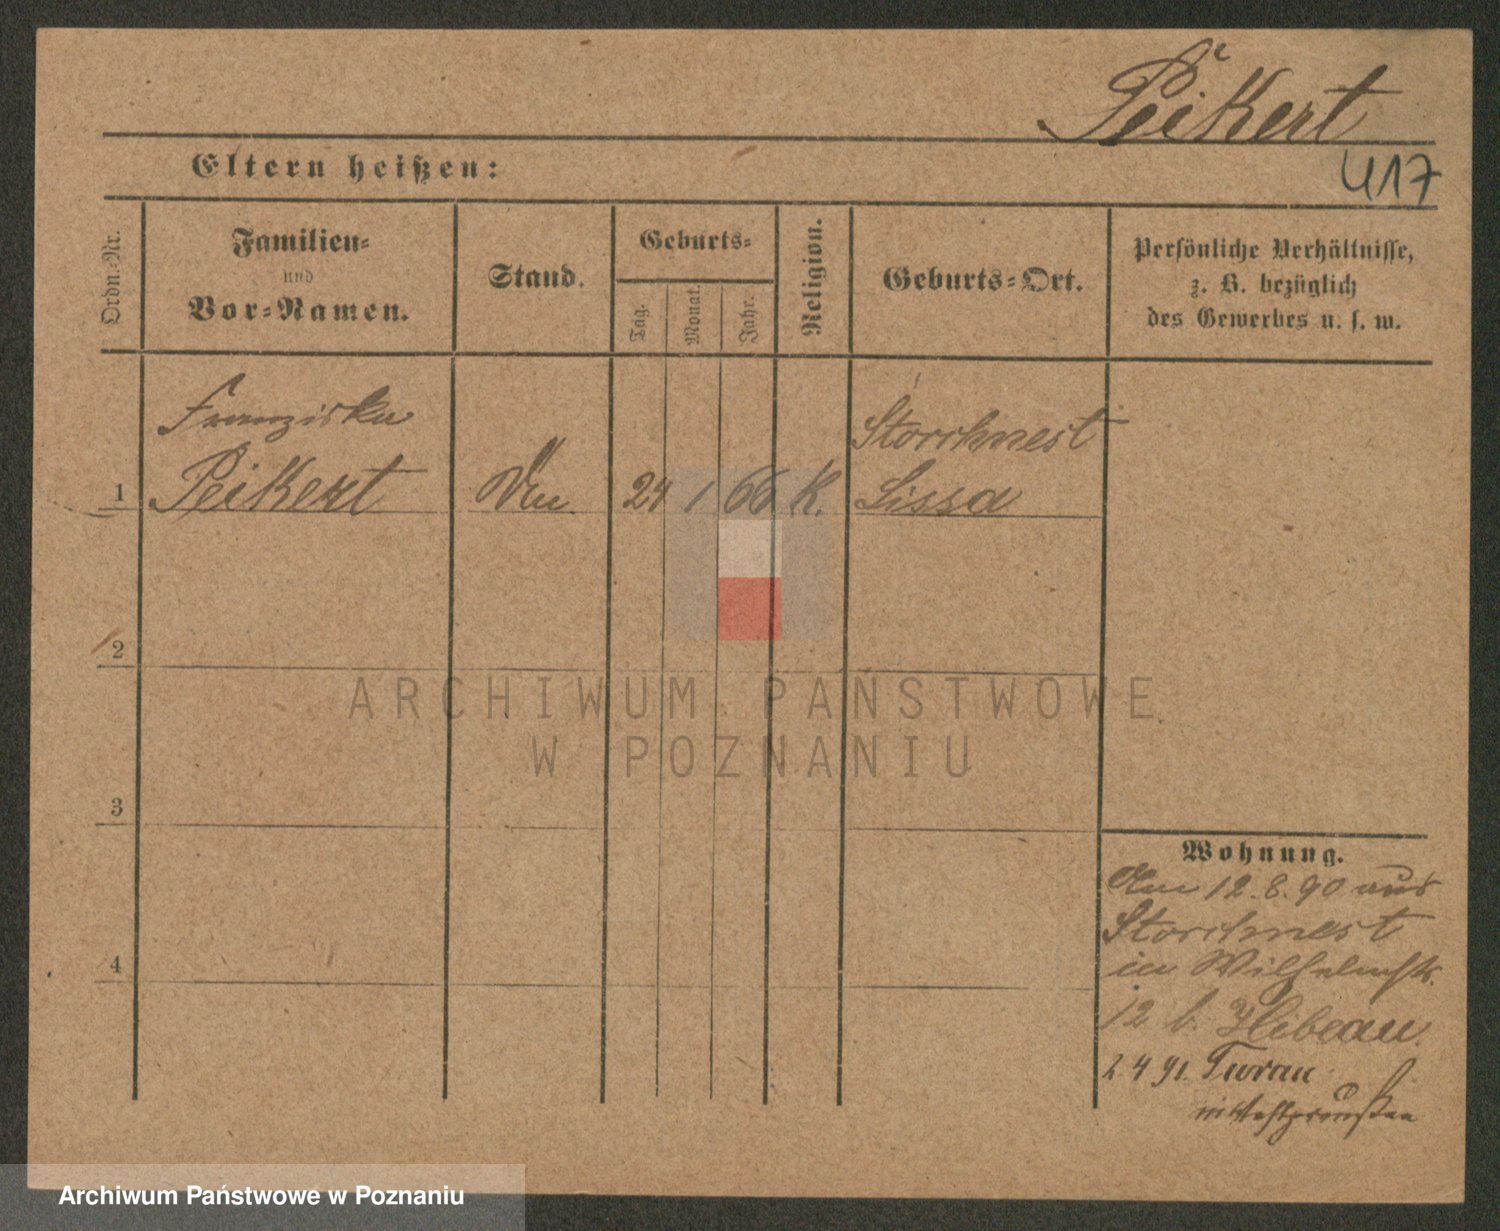 Peikert
417
Eltern heißen:
Ordn.-Nr.
Familien-
und
Vor-Namen.
Stand.
Geburts-
Tag.
Monat.
Jahr.
Religion.
Geburts-Ort.
Persönliche Verhältnisse,
z. B. bezüglich
des Gewerbes u. s. w.
Franziska
Storchnest
1 Peikert 24 1 66 K. Lissa
2
ARCHIWUM PAŃSTWOWE
W POZNANIU
3
Wohnung.
Am 12.8.90 aus
Storchnest
4
in
12 b.
2 4 91.
in Westpreußen
Archiwum Państwowe w Poznaniu